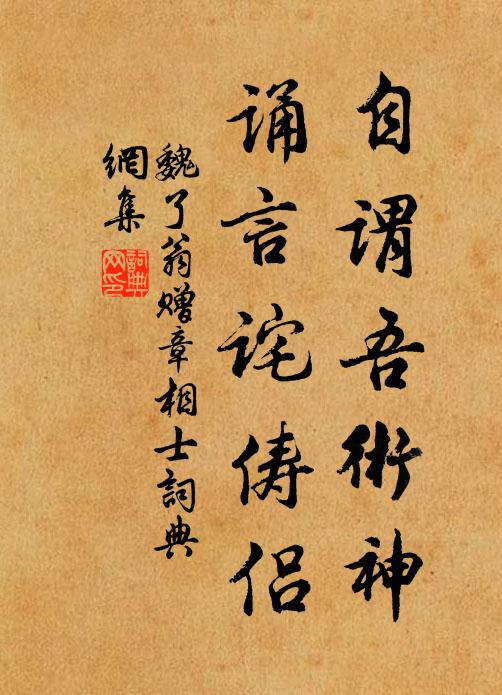 自謂吾術神
誦言詫俦侣
魏了翁赠章相士詞典
網集
詞典
网印